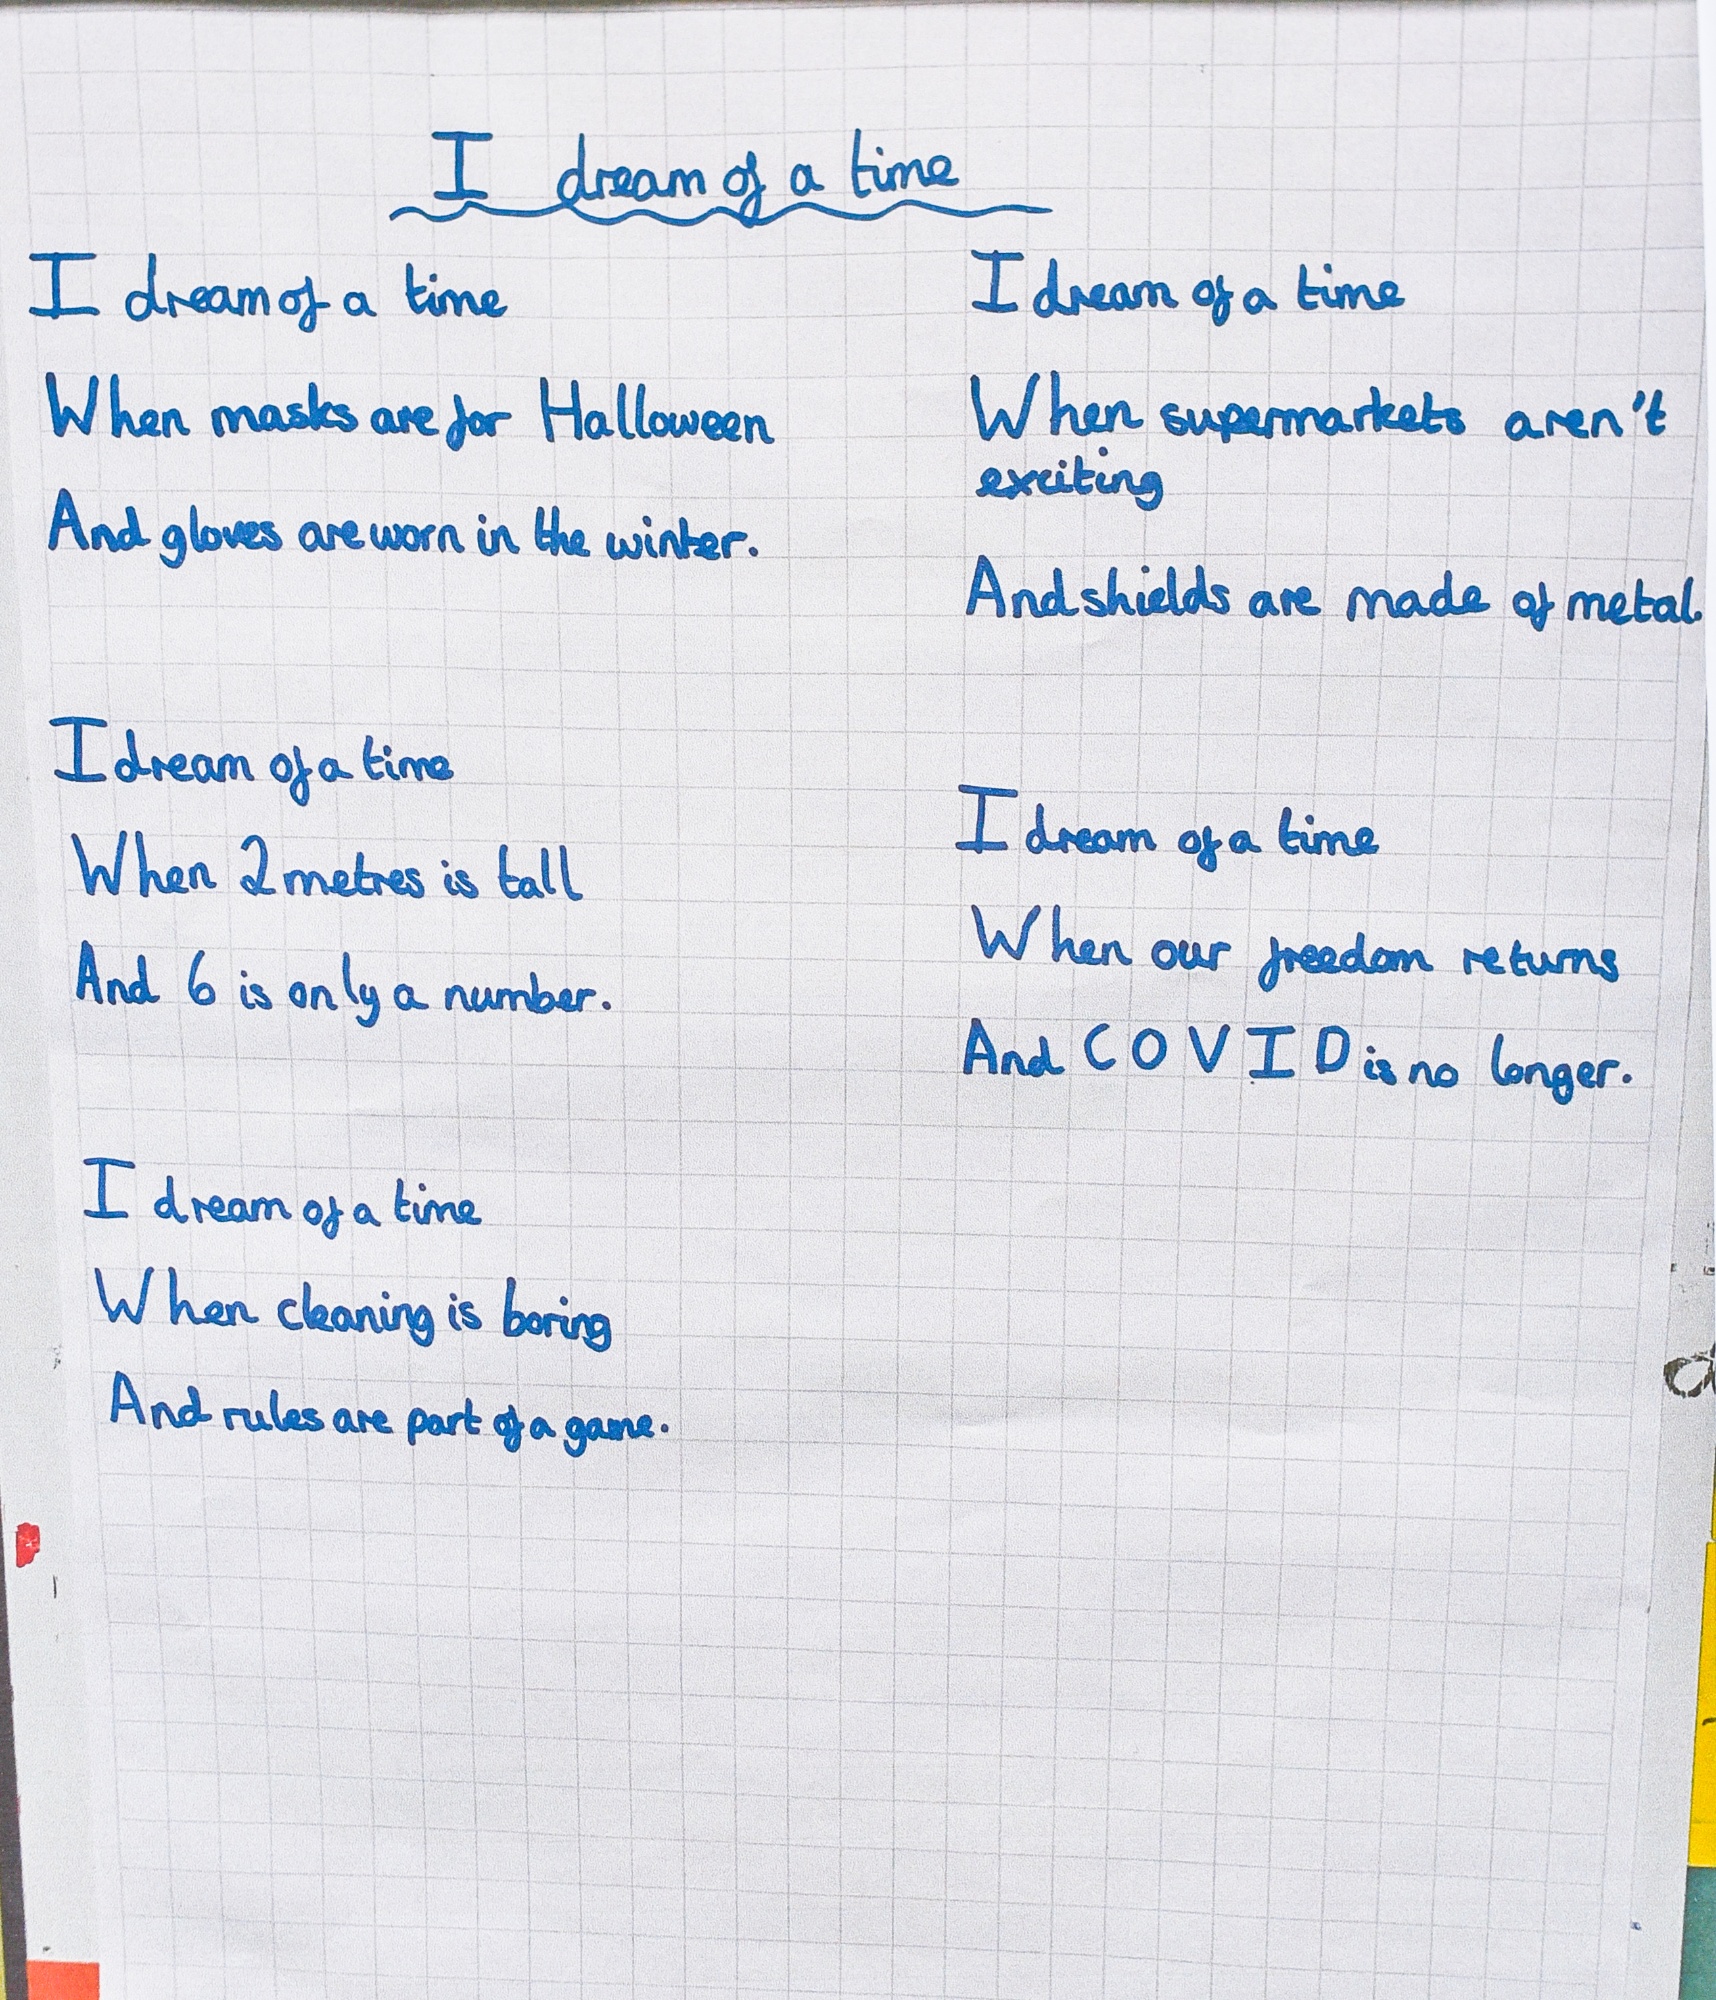 I dream of a time
I dream of a time
When masks are for Halloween
And gloves are worn in the winter.
I dream of a time
When 2 metres is tall
And 6 is only a number.
I dream of a time
When cleaning is boring
And rules are part of a game.
I dream of a time
When supermarkets aren't
exciting
And shields are made of metal.
I dream of a time
When our freedom returns
And COVID is no longer.